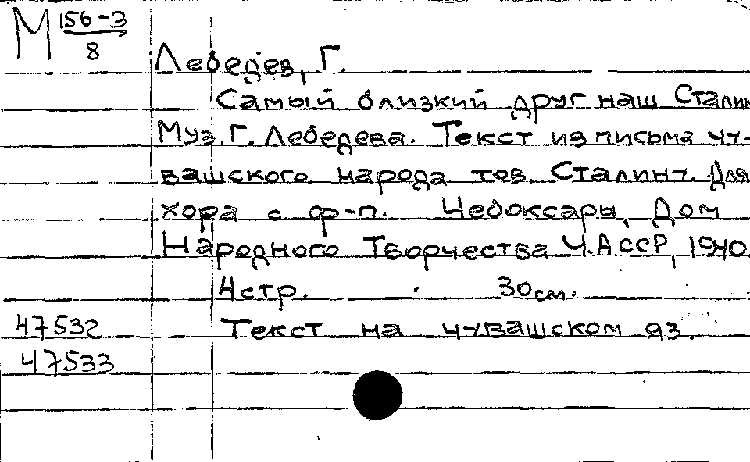 М 156-3
8
Лебедев, Г.
Самый близкий друг наш Сталин
Муз. Г. Лебедева. Текст из письма чу-
вашского народа тов. Сталину. Для
хора с ф-п. Чебоксары, Дом
Народного Творчества Ч.АССР, 1940.
4стр. 30см.
47532 Текст на чувашском яз.
47533